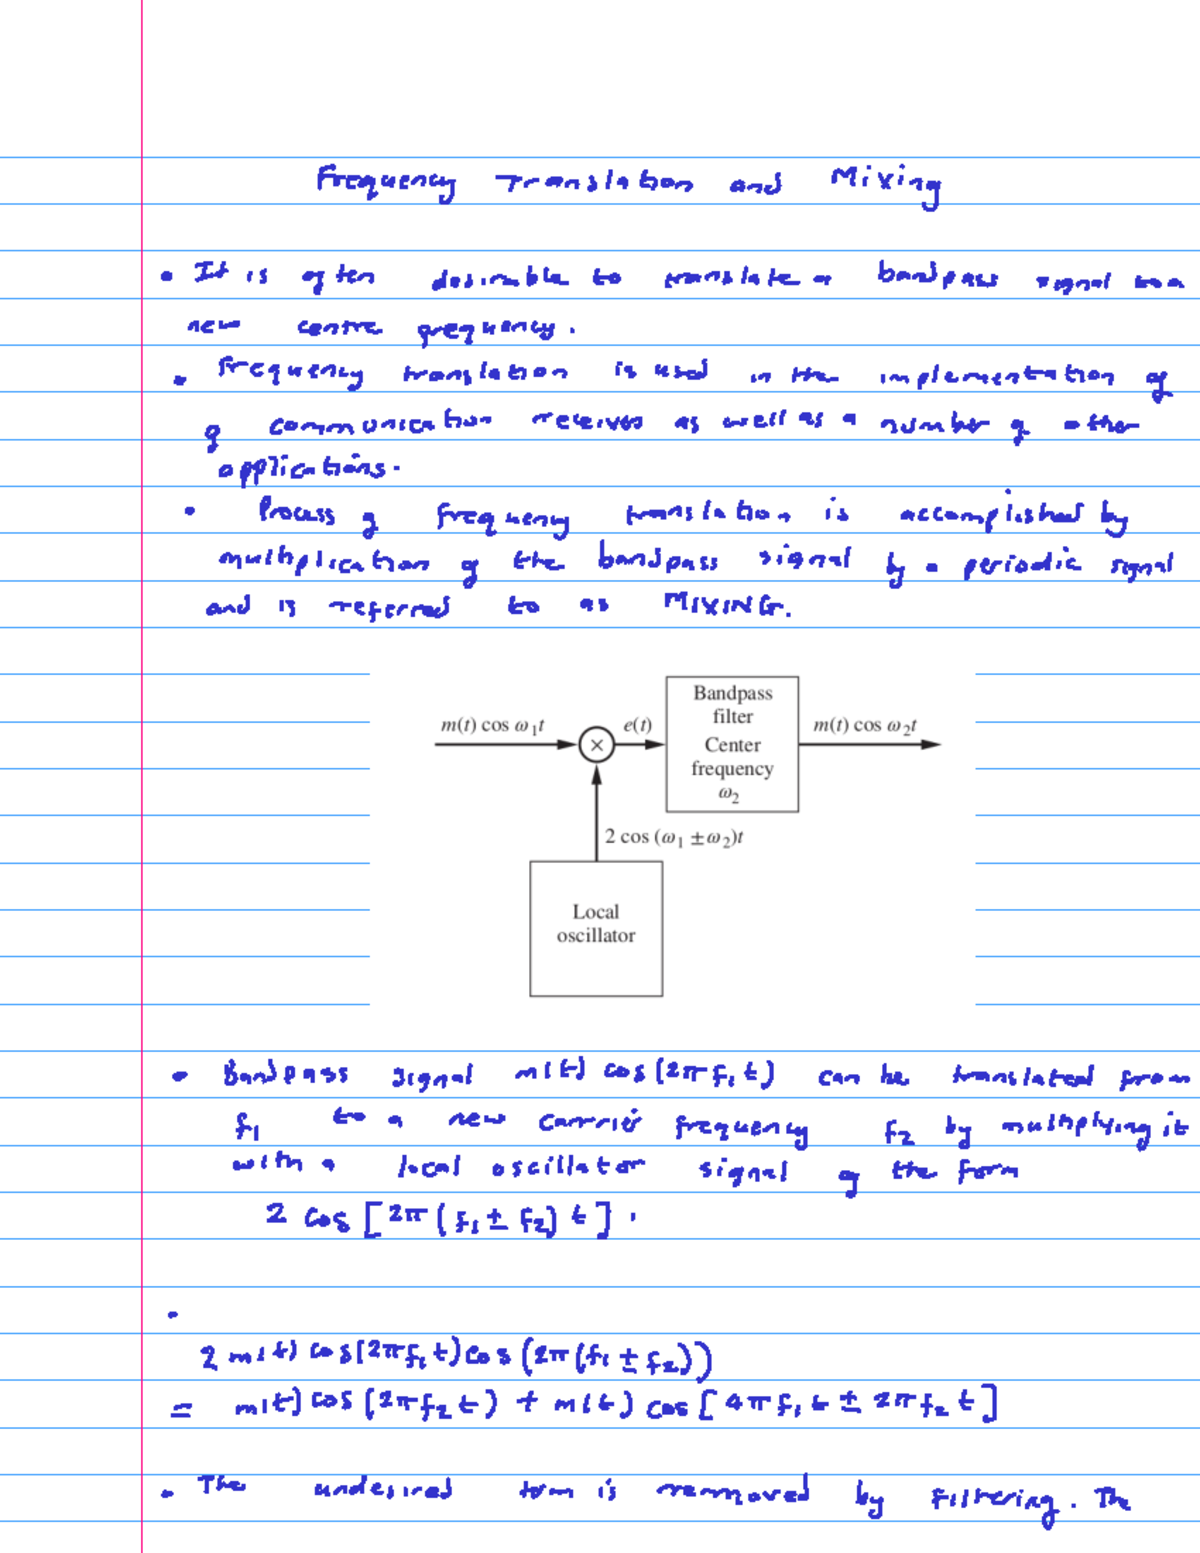 Frequency Translation and Mixing
• It is often desirable to translate a bandpass signal to a
new centre frequency.
• Frequency translation is used in the implementation of
of communication receivers as well as a number of other
applications.
• Process of frequency translation is accomplished by
multiplication of the bandpass signal by a periodic signal
and is referred to as MIXING.
m(t) cos ω₁t
e(t)
Bandpass
filter
Center
frequency
ω₂
m(t) cos ω₂t
2 cos (ω₁ ±ω₂)t
Local
oscillator
• Bandpass signal m(t) cos(2πf₁t) can be translated from
f₁ to a new carrier frequency f₂ by multiplying it
with a local oscillator signal of the form
2 cos [2π(f₁ ± f₂) t].
•
2 m(t) cos(2πf₁t) cos (2π(f₁ ± f₂))
= m(t) cos (2πf₂t) + m(t) cos [4πf₁t ± 2πf₂t]
• The undesired term is remmoved by filtering. The